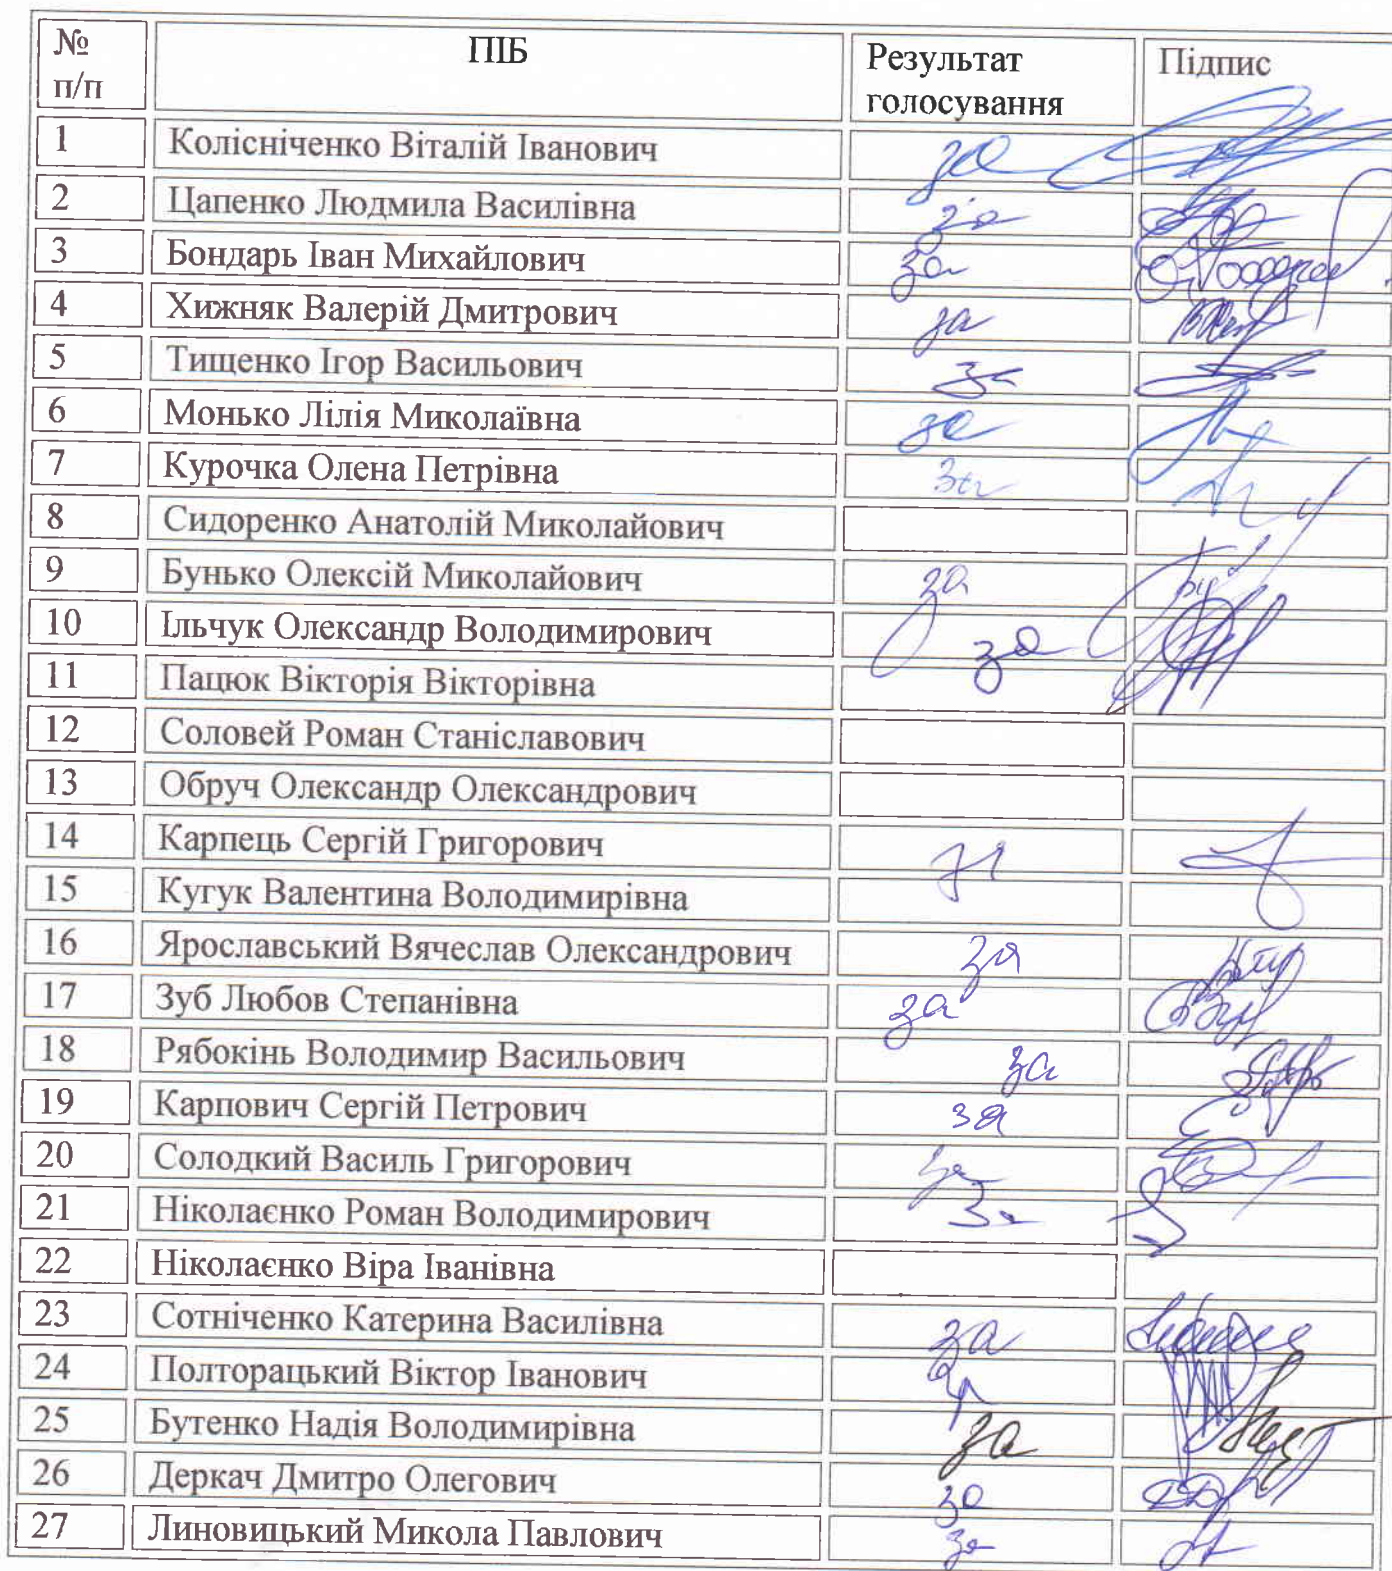 № п/п ПІБ Результат голосування Підпис
1 Колісніченко Віталій Іванович за
2 Цапенко Людмила Василівна за
3 Бондарь Іван Михайлович за
4 Хижняк Валерій Дмитрович за
5 Тищенко Ігор Васильович за
6 Монько Лілія Миколаївна за
7 Курочка Олена Петрівна за
8 Сидоренко Анатолій Миколайович
9 Бунько Олексій Миколайович за
10 Ільчук Олександр Володимирович за
11 Пацюк Вікторія Вікторівна
12 Соловей Роман Станіславович
13 Обруч Олександр Олександрович
14 Карпець Сергій Григорович за
15 Кугук Валентина Володимирівна
16 Ярославський Вячеслав Олександрович за
17 Зуб Любов Степанівна за
18 Рябокінь Володимир Васильович за
19 Карпович Сергій Петрович за
20 Солодкий Василь Григорович за
21 Ніколаєнко Роман Володимирович за
22 Ніколаєнко Віра Іванівна
23 Сотніченко Катерина Василівна за
24 Полторацький Віктор Іванович за
25 Бутенко Надія Володимирівна за
26 Деркач Дмитро Олегович за
27 Линовицький Микола Павлович за